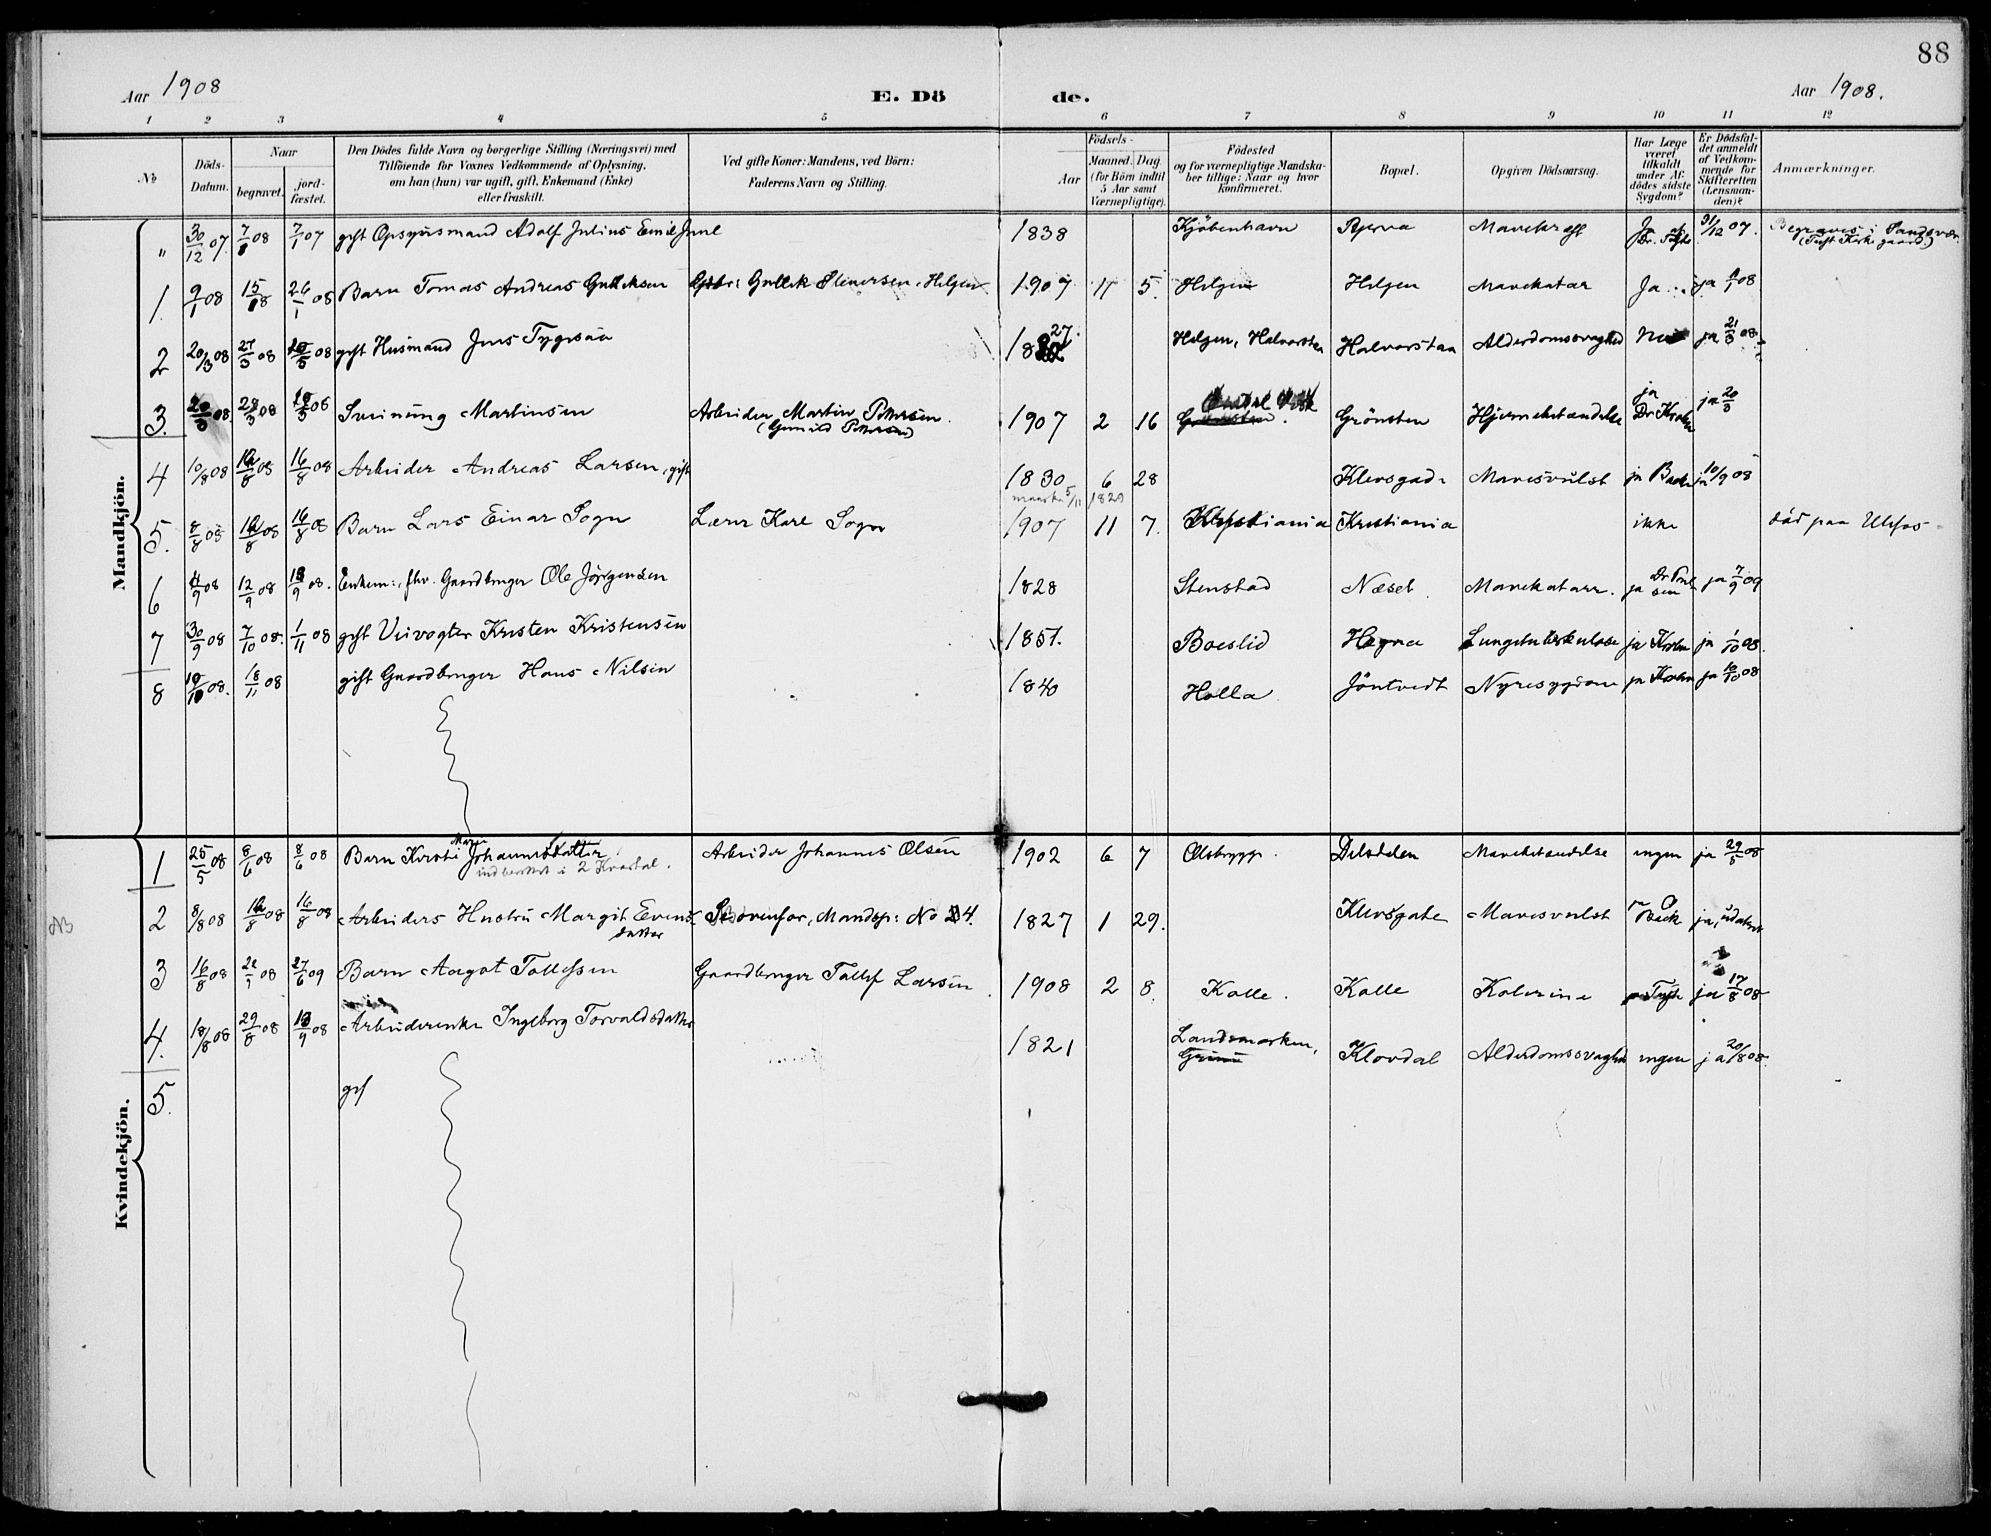 88
Aar 1908
E. Dö de.
Aar 1908.
1 2 3 4 5 6 7 8 9 10 11 12
No
Döds-Datum.
Naar
begravet.
jord-fæstet.
Den Dödes fulde Navn og borgerlige Stilling (Næringsvei) med
Tilföiende for Voxnes Vedkommende af Oplysning,
om han (hun) var ugift, gift, Enkemand (Enke)
eller fraskilt.
Ved gifte Koner: Mandens, ved Börn:
Faderens Navn og Stilling.
Födsels-
Aar
Maaned. Dag
(for Börn indtil
5 Aar samt
Værnepligtige).
Födested
og for værnepligtige Mandska-
ber tillige: Naar og hvor
konfirmeret.
Bopæl.
Opgiven Dödsaarsag.
Har Læge
været
tilkaldt
under Af-
dödes sidste
Sygdom?
Er Dödsfal-
det anmeldt
af Vedkom-
mende for
Skifteretten
(Lensman-
den)?
Anmærkninger.
Mandkjön.
" 30/12 07 7/1 08 7/1 07 gift Opsynsmand Adolf Julius Emil Juul 1838 Kjöbenhavn Mavekræft Ja 31/12 07. Begraves i Sandsvær
(Tuft Kirkegaard)
1. 9/1 08 15/1 08 26/1 08 Barn Tomas Andreas Gulliksen Gullik Stenersen, Helgen 1907 11 5. Helgen Helgen Mavekatar Ja ja 9/1 08
2 20/3 08 27/3 08 08 gift Husmand Jens 1827. Helgen, Halvorstaa Halvorstaa Alderdomssvaghed nei ja 21/3 08
3. 20/3 08. 28/3 08 Sveinung Martinsen Arbeider Martin Pettersen.
(Gunild Pettersen) 1907 2 16 Grönsten Hjernebetændelse ja
Dr. Krohn ja 20/3
4 10/8 08 16/8 08 16/8 08 Arbeider Andreas Larsen, gift 1830 6 28 Klevsgad. Mavesvulst ja Back ja 10/9 08
maaske 5/11 1829
5. 8/8 08 16/8 08 16/8 08 Barn Lars Einar Sogn Lærer Karl Sogn 1907 11 7. Kristiania Kristiania ikke död paa Ulefos
6 4/9 08 12/9 08 13/9 08. Enkem:, fhv. Gaardbruger Ole Jörgensen 1828 Stenstad Næset. Mavekatarr. ja ja 7/9 09
7 30/9 08 7/10 08. 1/11 08 gift Veivogter Kristen Kristensen 1851. Boeslid Hegna Lungetuberkulose ja Krohn ja 1/10 08.
8 10/10 08. 18/11 08 gift Gaardbruger Hans Nilsen 1840 Holla Jöntvedt Nyresygdom ja Krohn ja 10/10 08
Kvindekjön.
1 25/5 08 8/6 08 8/6 08 Barn Kirsti Marie Johannesdatter Arbeider Johannes Olsen 1902 6 7 Olsbrygg. Mavebetændelse ingen ja 29/5 08
indberettet i 2 Kvartal.
NB 2 8/8 08 16/8 08 16/8 08 Arbeiders Hustru Margit Evens-
datter Se ovenfor, Mandsp: No 4. 1827 1 29. Klevsgate Mavesvulst Back ja, udateret
3 16/8 08 22/9 08 27/6 09 Barn Aagot Tollefsen Gaardbruger Tollef Larsen 1908 2 8. Kolle. Kolle Kolerine ja 17/8 08
4. 18/8 08 29/8 08 13/9 08 Arbeiderenke Ingeborg Torvaldsdatter 1821 Landsmarken, Klovdal Alderdomssvaghed ingen ja 20/8 08.
5. gif